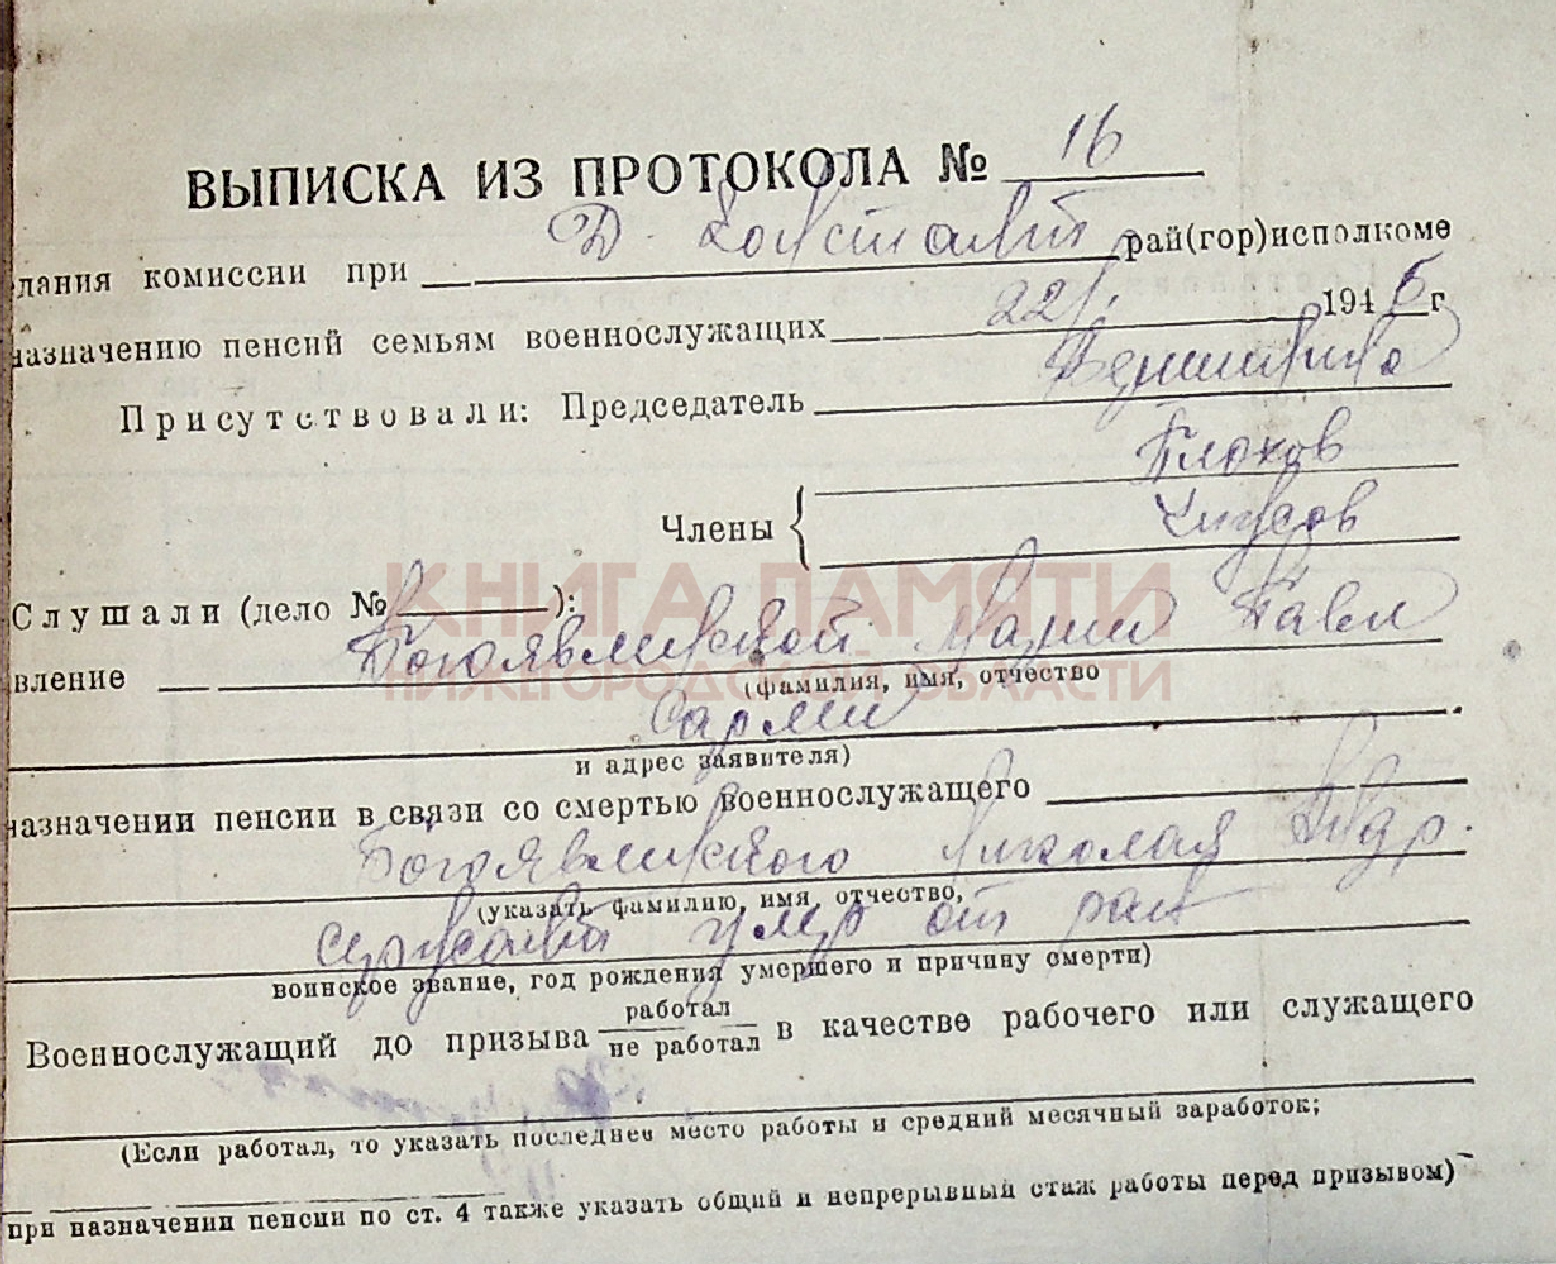 ВЫПИСКА ИЗ ПРОТОКОЛА № 16
дания комиссии при Д. Констант рай(гор)исполкоме
назначению пенсий семьям военнослужащих 22/ 1946 г
Присутствовали: Председатель
Члены { Блохов
Слушали (дело № ):
вление Богоявленской Марии Павл
(фамилия, имя, отчество
Сарлеи
и адрес заявителя)
назначении пенсии в связи со смертью военнослужащего
Богоявленского Николая Андр.
(указать фамилию, имя, отчество,
сержант умер от ран
воинское звание, год рождения умершего и причину смерти)
Военнослужащий до призыва работал
не работал в качестве рабочего или служащего
(Если работал, то указать последнее место работы и средний месячный заработок;
при назначении пенсии по ст. 4 также указать общий и непрерывный стаж работы перед призывом)
КНИГА ПАМЯТИ
НИЖЕГОРОДСКОЙ ОБЛАСТИ